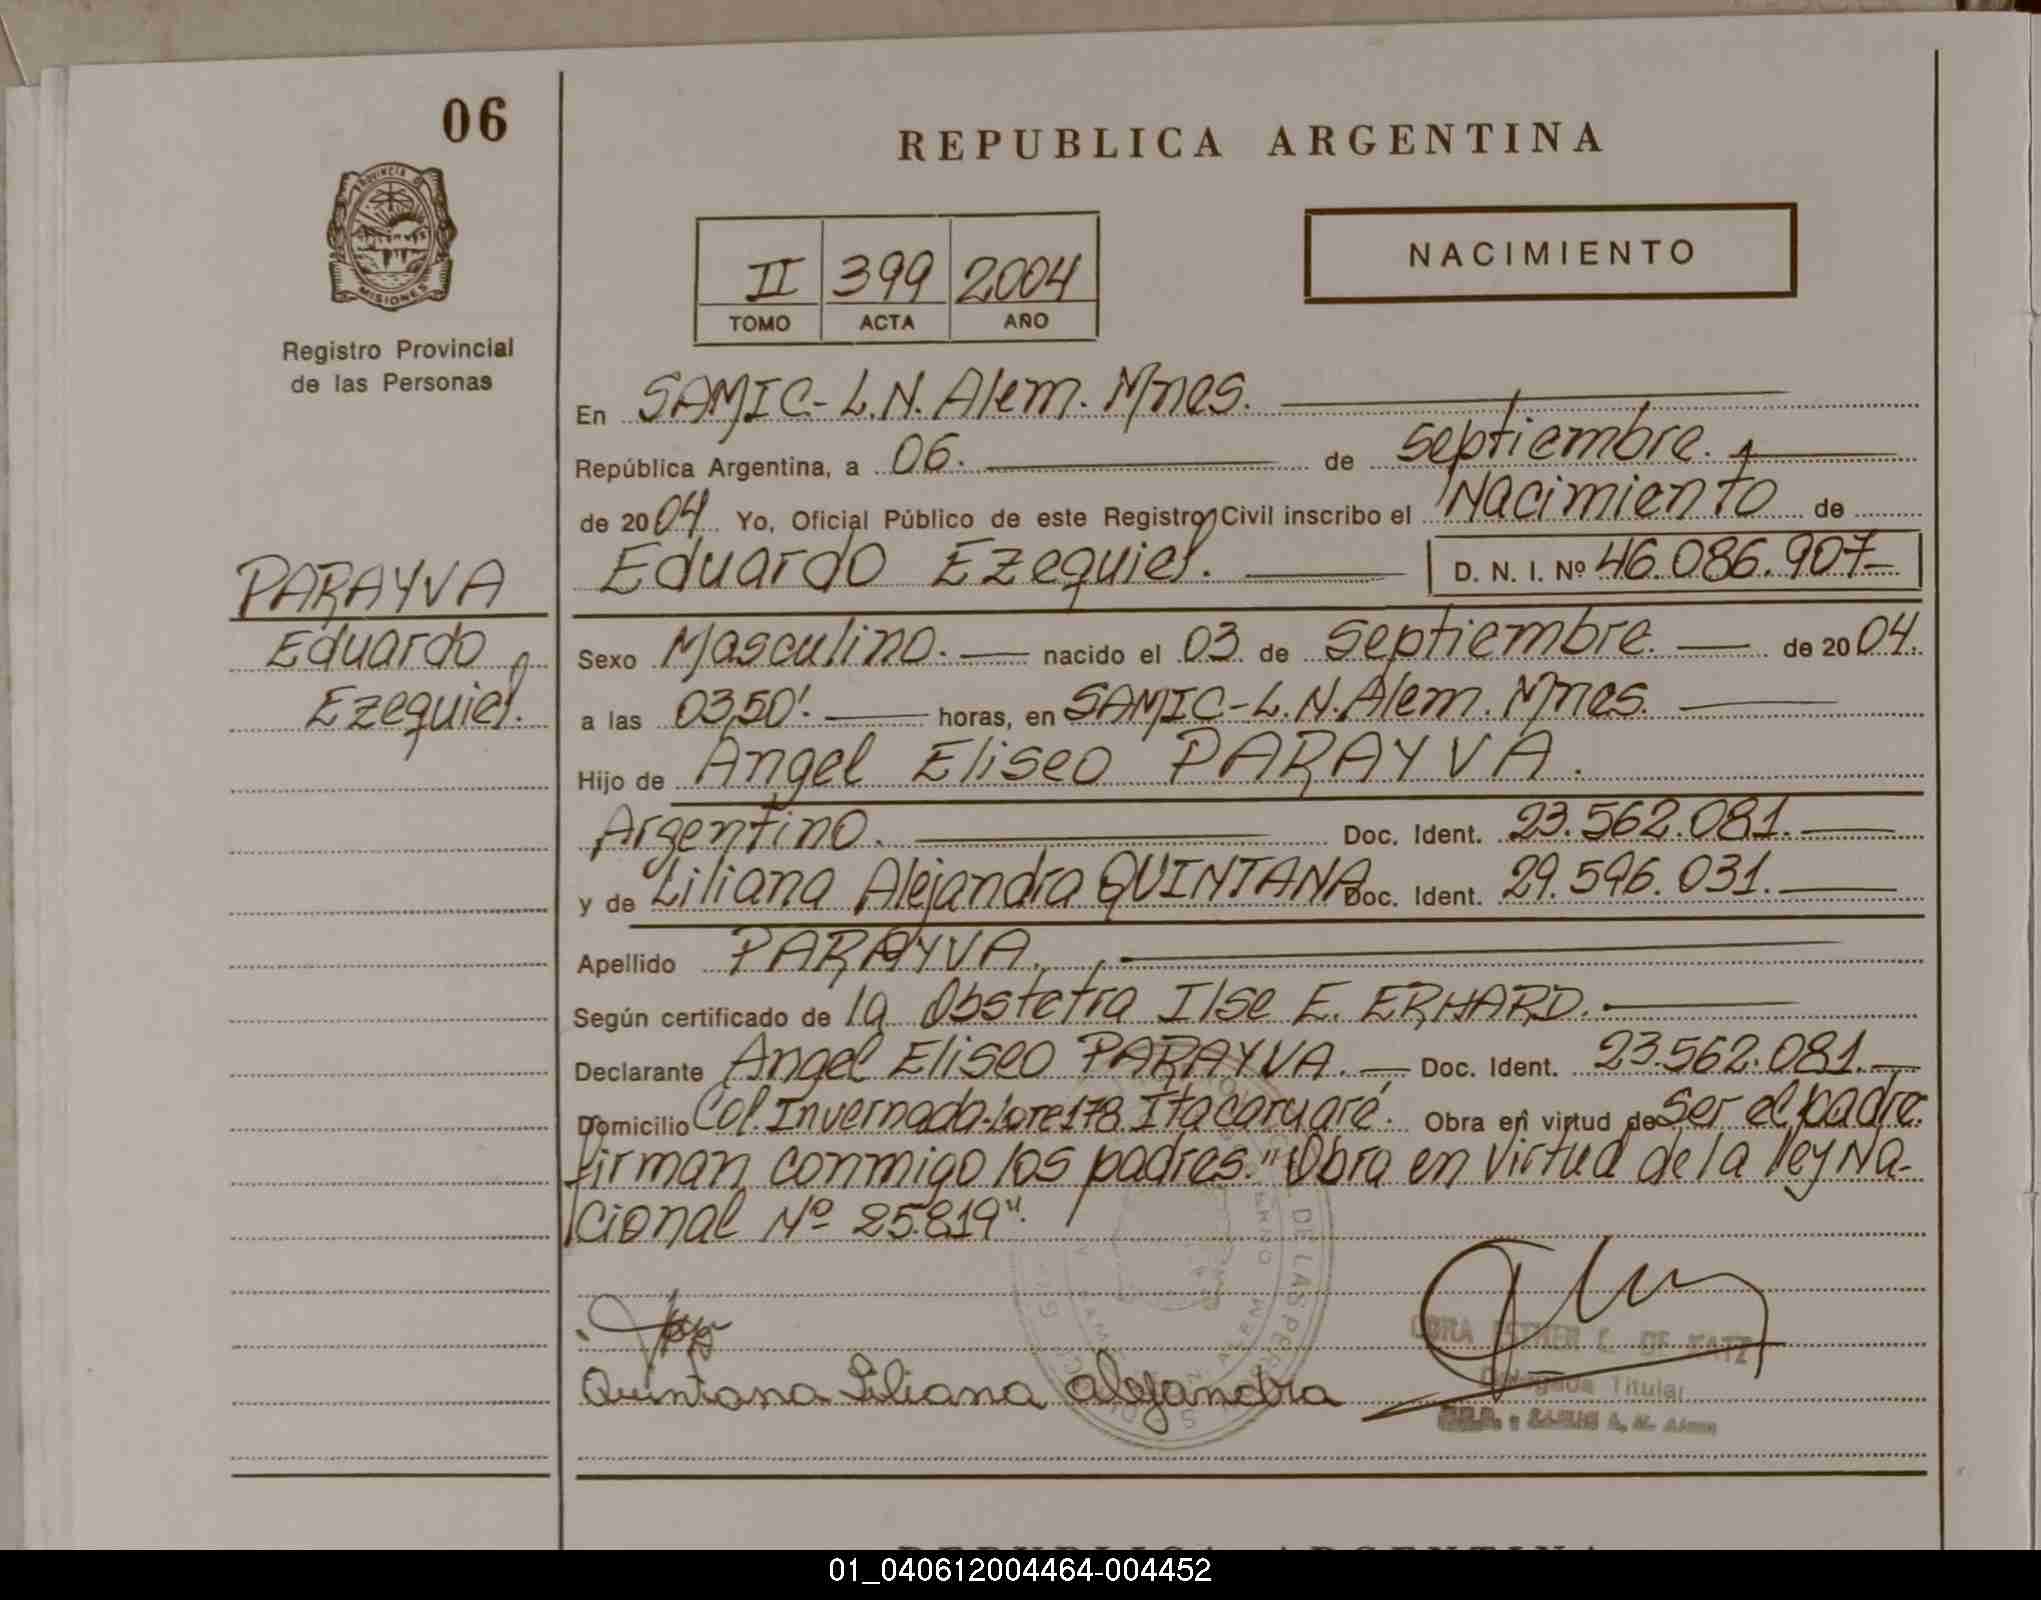 06
REPUBLICA ARGENTINA
PROVINCIA DE
MISIONES
Registro Provincial
de las Personas
II 399 2004
TOMO ACTA AÑO
NACIMIENTO
En SAMIC-L.N.Alem.Mnes.
República Argentina, a 06. de septiembre.
de 2004 Yo, Oficial Público de este Registro Civil inscribo el Nacimiento de
Eduardo Ezequiel. D. N. I. Nº 46.086.907
PARAYVA
Eduardo
Ezequiel.
Sexo Masculino. nacido el 03 de Septiembre. de 2004.
a las 03,50'. horas, en SAMIC-L.N.Alem.Mnes.
Hijo de Angel Eliseo PARAYVA.
Argentino. Doc. Ident. 23.562.081.
y de Liliana Alejandra QUINTANA Doc. Ident. 29.596.031.
Apellido PARAYVA.
Según certificado de la Obstetra Ilse E. ERHARD.
Declarante Angel Eliseo PARAYVA. Doc. Ident. 23.562.081.
Domicilio Col.Invernada-Lote 178.Itacaruaré. Obra en virtud de ser el padre.
firman conmigo los padres."Obra en virtud de la ley Na-
cional Nº 25.819".
Quintana Liliana Alejandra
ESTHER DE KATZ
Delegada Titular
DE LAS PER
REPUBLICA ARGENTINA
01_040612004464-004452